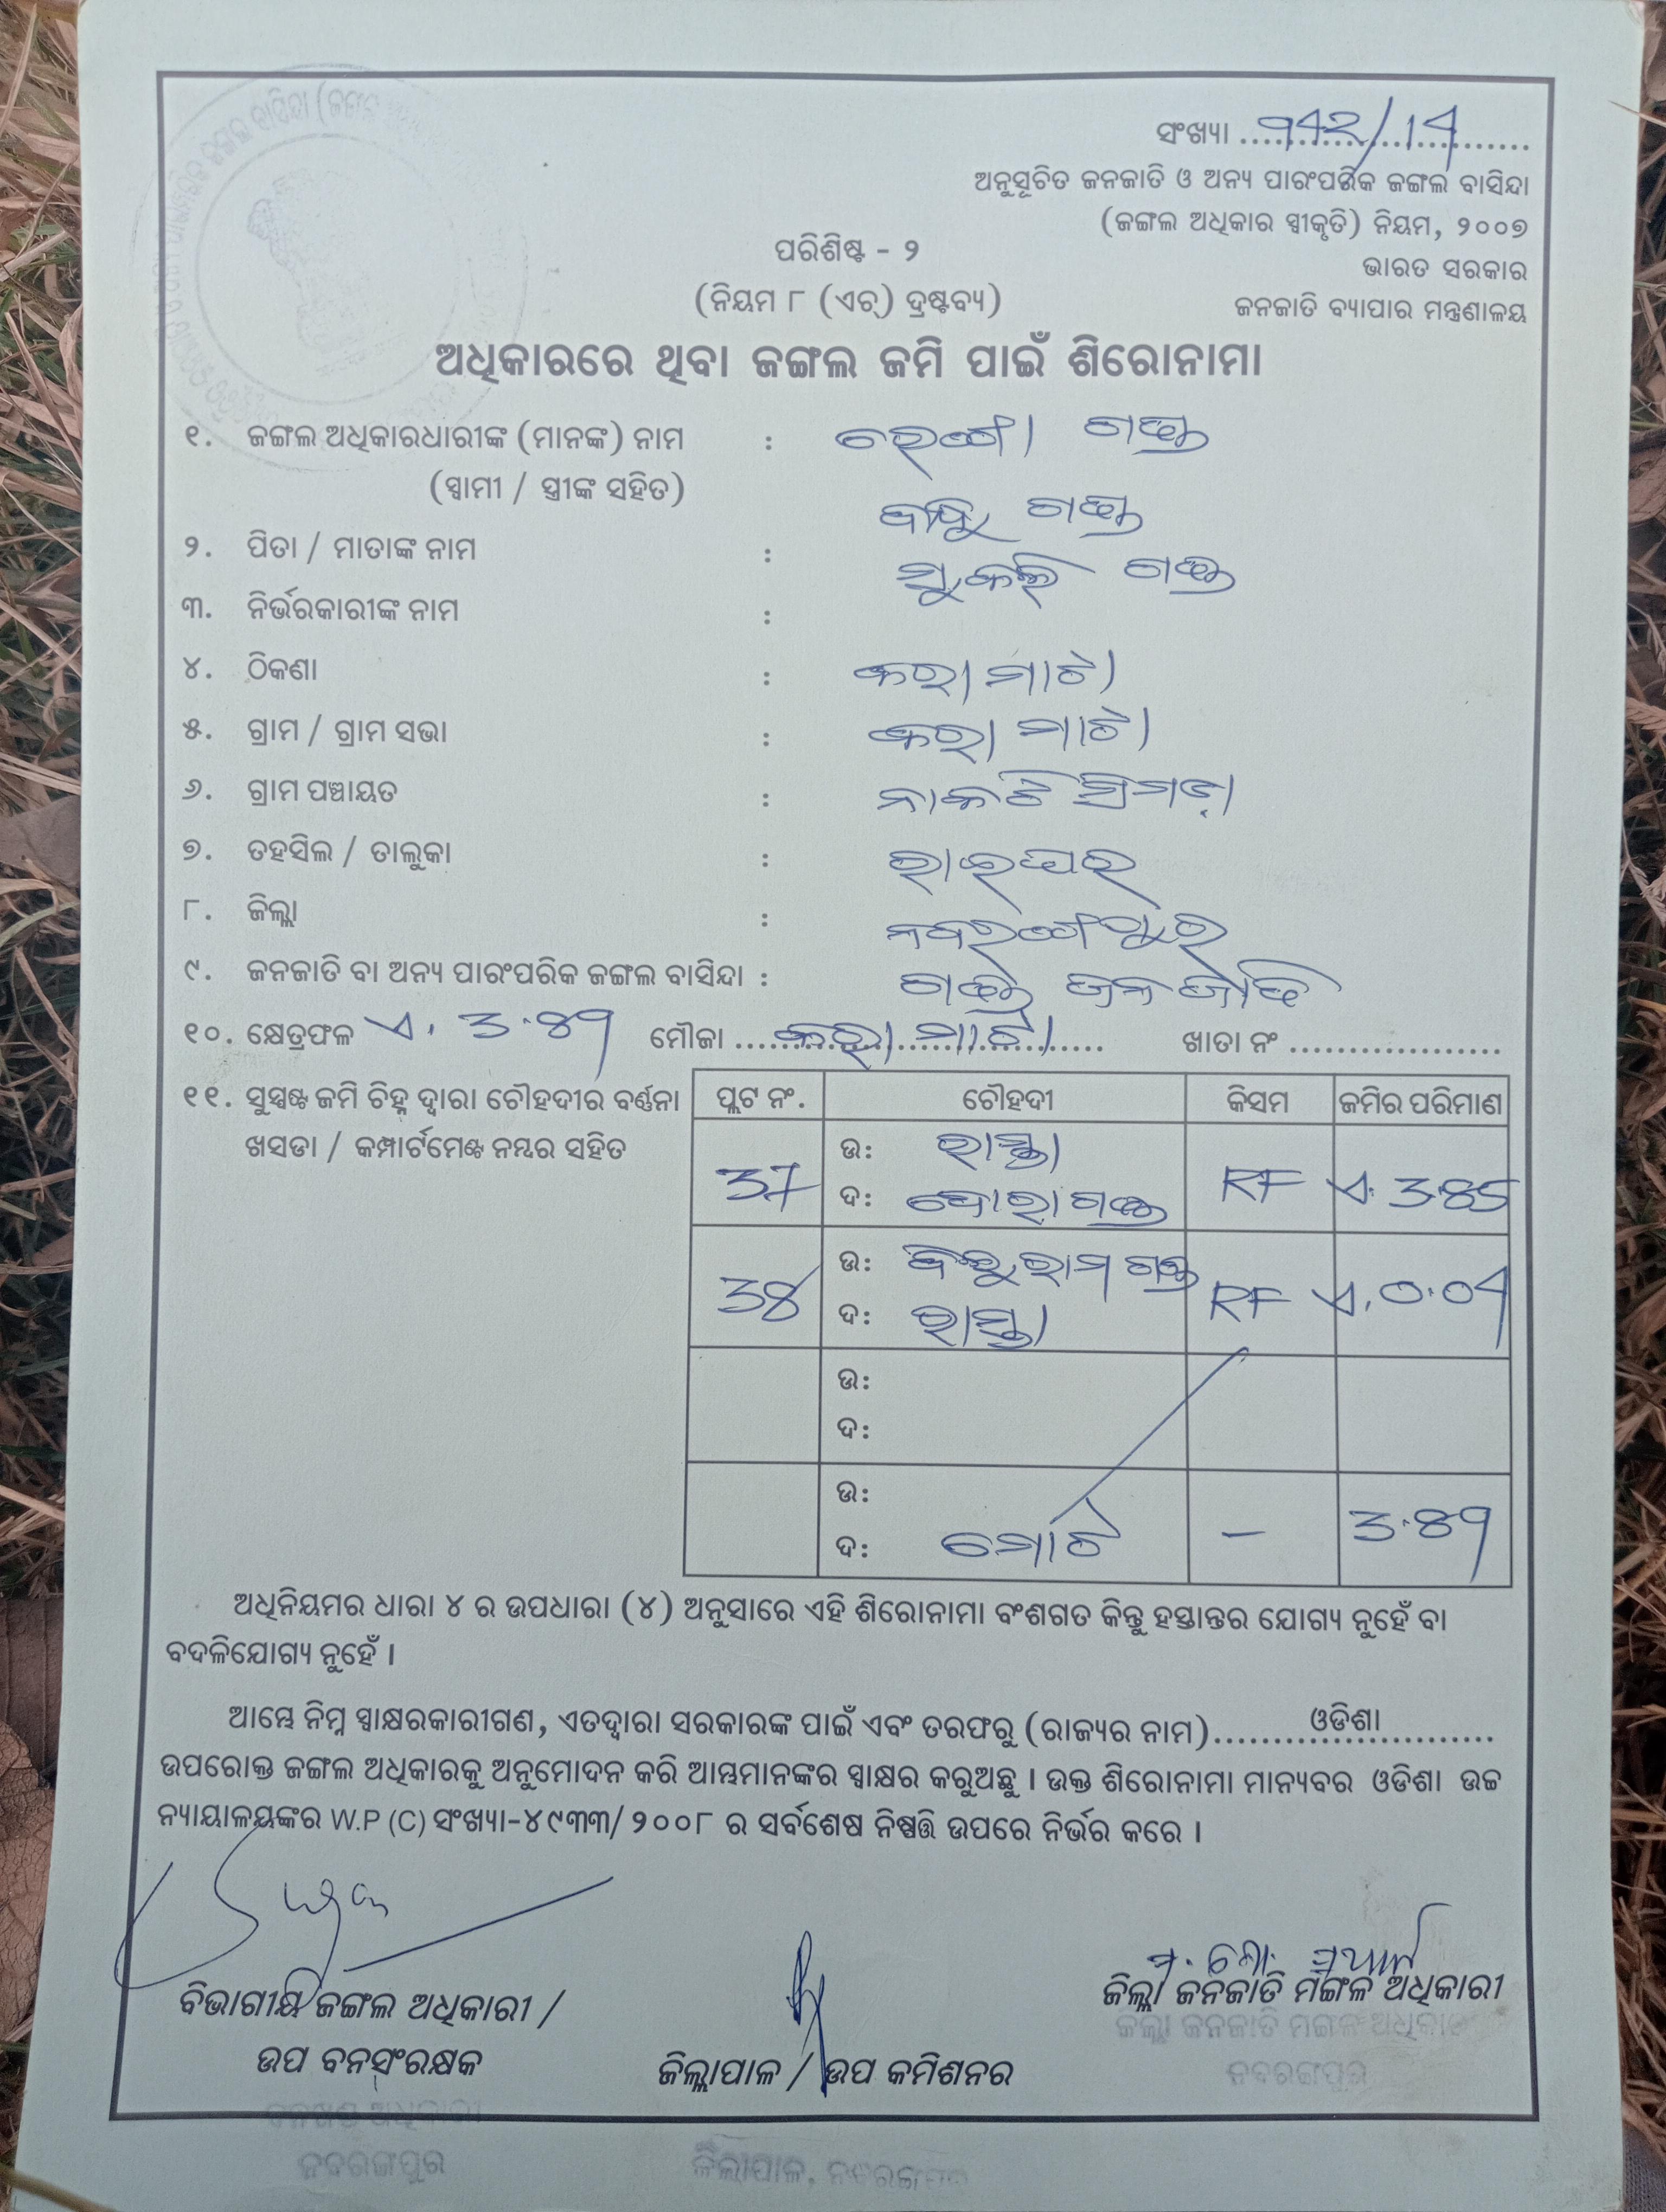 ସଂଖ୍ୟା ....୨42/14....
ଅନୁସୂଚିତ ଜନଜାତି ଓ ଅନ୍ୟ ପାରଂପରିକ ଜଙ୍ଗଲ ବାସିନ୍ଦା
(ଜଙ୍ଗଲ ଅଧିକାର ସ୍ୱୀକୃତି) ନିୟମ, ୨୦୦୭
ଭାରତ ସରକାର
ଜନଜାତି ବ୍ୟାପାର ମନ୍ତ୍ରଣାଳୟ
ପରିଶିଷ୍ଟ - ୨
(ନିୟମ ୮ (ଏଚ୍) ଦ୍ରଷ୍ଟବ୍ୟ)
ଅଧିକାରରେ ଥିବା ଜଙ୍ଗଲ ଜମି ପାଇଁ ଶିରୋନାମା
୧. ଜଙ୍ଗଲ ଅଧିକାରଧାରୀଙ୍କ (ମାନଙ୍କ) ନାମ : ଗଣ୍ଡ
(ସ୍ୱାମୀ / ସ୍ତ୍ରୀଙ୍କ ସହିତ)
୨. ପିତା / ମାତାଙ୍କ ନାମ : ଗଣ୍ଡ
୩. ନିର୍ଭରକାରୀଙ୍କ ନାମ : ଗଣ୍ଡ
୪. ଠିକଣା : କରାମାଟୋ
୫. ଗ୍ରାମ / ଗ୍ରାମ ସଭା : କରାମାଟୋ
୬. ଗ୍ରାମ ପଞ୍ଚାୟତ : ନାକଟିସିମଡ଼ା
୭. ତହସିଲ / ତାଲୁକା : ରାଇଘର
୮. ଜିଲ୍ଲା : ନବରଙ୍ଗପୁର
୯. ଜନଜାତି ବା ଅନ୍ୟ ପାରଂପରିକ ଜଙ୍ଗଲ ବାସିନ୍ଦା : ଗଣ୍ଡ ଜନଜାତି
୧୦. କ୍ଷେତ୍ରଫଳ ଏ. 3.89 ମୌଜା ....କରାମାଟୋ.... ଖାତା ନଂ ..................
୧୧. ସୁସ୍ପଷ୍ଟ ଜମି ଚିହ୍ନ ଦ୍ୱାରା ଚୌହଦୀର ବର୍ଣ୍ଣନା
ଖସଡା / କମ୍ପାର୍ଟମେଣ୍ଟ ନମ୍ବର ସହିତ
ପ୍ଲଟ ନଂ. ଚୌହଦୀ କିସମ ଜମିର ପରିମାଣ
37 ଉ: ରାସ୍ତା RF ଏ. 3.85
ଦ: ଗଣ୍ଡ
38 ଉ: ଗଣ୍ଡ RF ଏ. 0.04
ଦ: ରାସ୍ତା
ଉ:
ଦ:
ଉ:
ଦ: ମୋଟ – 3.89
ଅଧିନିୟମର ଧାରା ୪ ର ଉପଧାରା (୪) ଅନୁସାରେ ଏହି ଶିରୋନାମା ବଂଶଗତ କିନ୍ତୁ ହସ୍ତାନ୍ତର ଯୋଗ୍ୟ ନୁହେଁ ବା
ବଦଳିଯୋଗ୍ୟ ନୁହେଁ ।
ଆମ୍ଭେ ନିମ୍ନ ସ୍ୱାକ୍ଷରକାରୀଗଣ, ଏତଦ୍ୱାରା ସରକାରଙ୍କ ପାଇଁ ଏବଂ ତରଫରୁ (ରାଜ୍ୟର ନାମ)........ଓଡିଶା........
ଉପରୋକ୍ତ ଜଙ୍ଗଲ ଅଧିକାରକୁ ଅନୁମୋଦନ କରି ଆମ୍ଭମାନଙ୍କର ସ୍ୱାକ୍ଷର କରୁଅଛୁ । ଉକ୍ତ ଶିରୋନାମା ମାନ୍ୟବର ଓଡିଶା ଉଚ୍ଚ
ନ୍ୟାୟାଳୟଙ୍କର W.P (C) ସଂଖ୍ୟା-୪୯୩୩/ ୨୦୦୮ ର ସର୍ବଶେଷ ନିଷ୍ପତ୍ତି ଉପରେ ନିର୍ଭର କରେ ।
ବିଭାଗୀୟ ଜଙ୍ଗଲ ଅଧିକାରୀ /
ଉପ ବନସଂରକ୍ଷକ
ଜିଲ୍ଲାପାଳ / ଉପ କମିଶନର
ଜିଲ୍ଲା ଜନଜାତି ମଙ୍ଗଳ ଅଧିକାରୀ
ଜିଲ୍ଲା ଜନଜାତି ମଙ୍ଗଳ ଅଧିକାରୀ
ନବରଙ୍ଗପୁର
ନବରଙ୍ଗପୁର
ଜିଲ୍ଲାପାଳ, ନବରଙ୍ଗପୁର